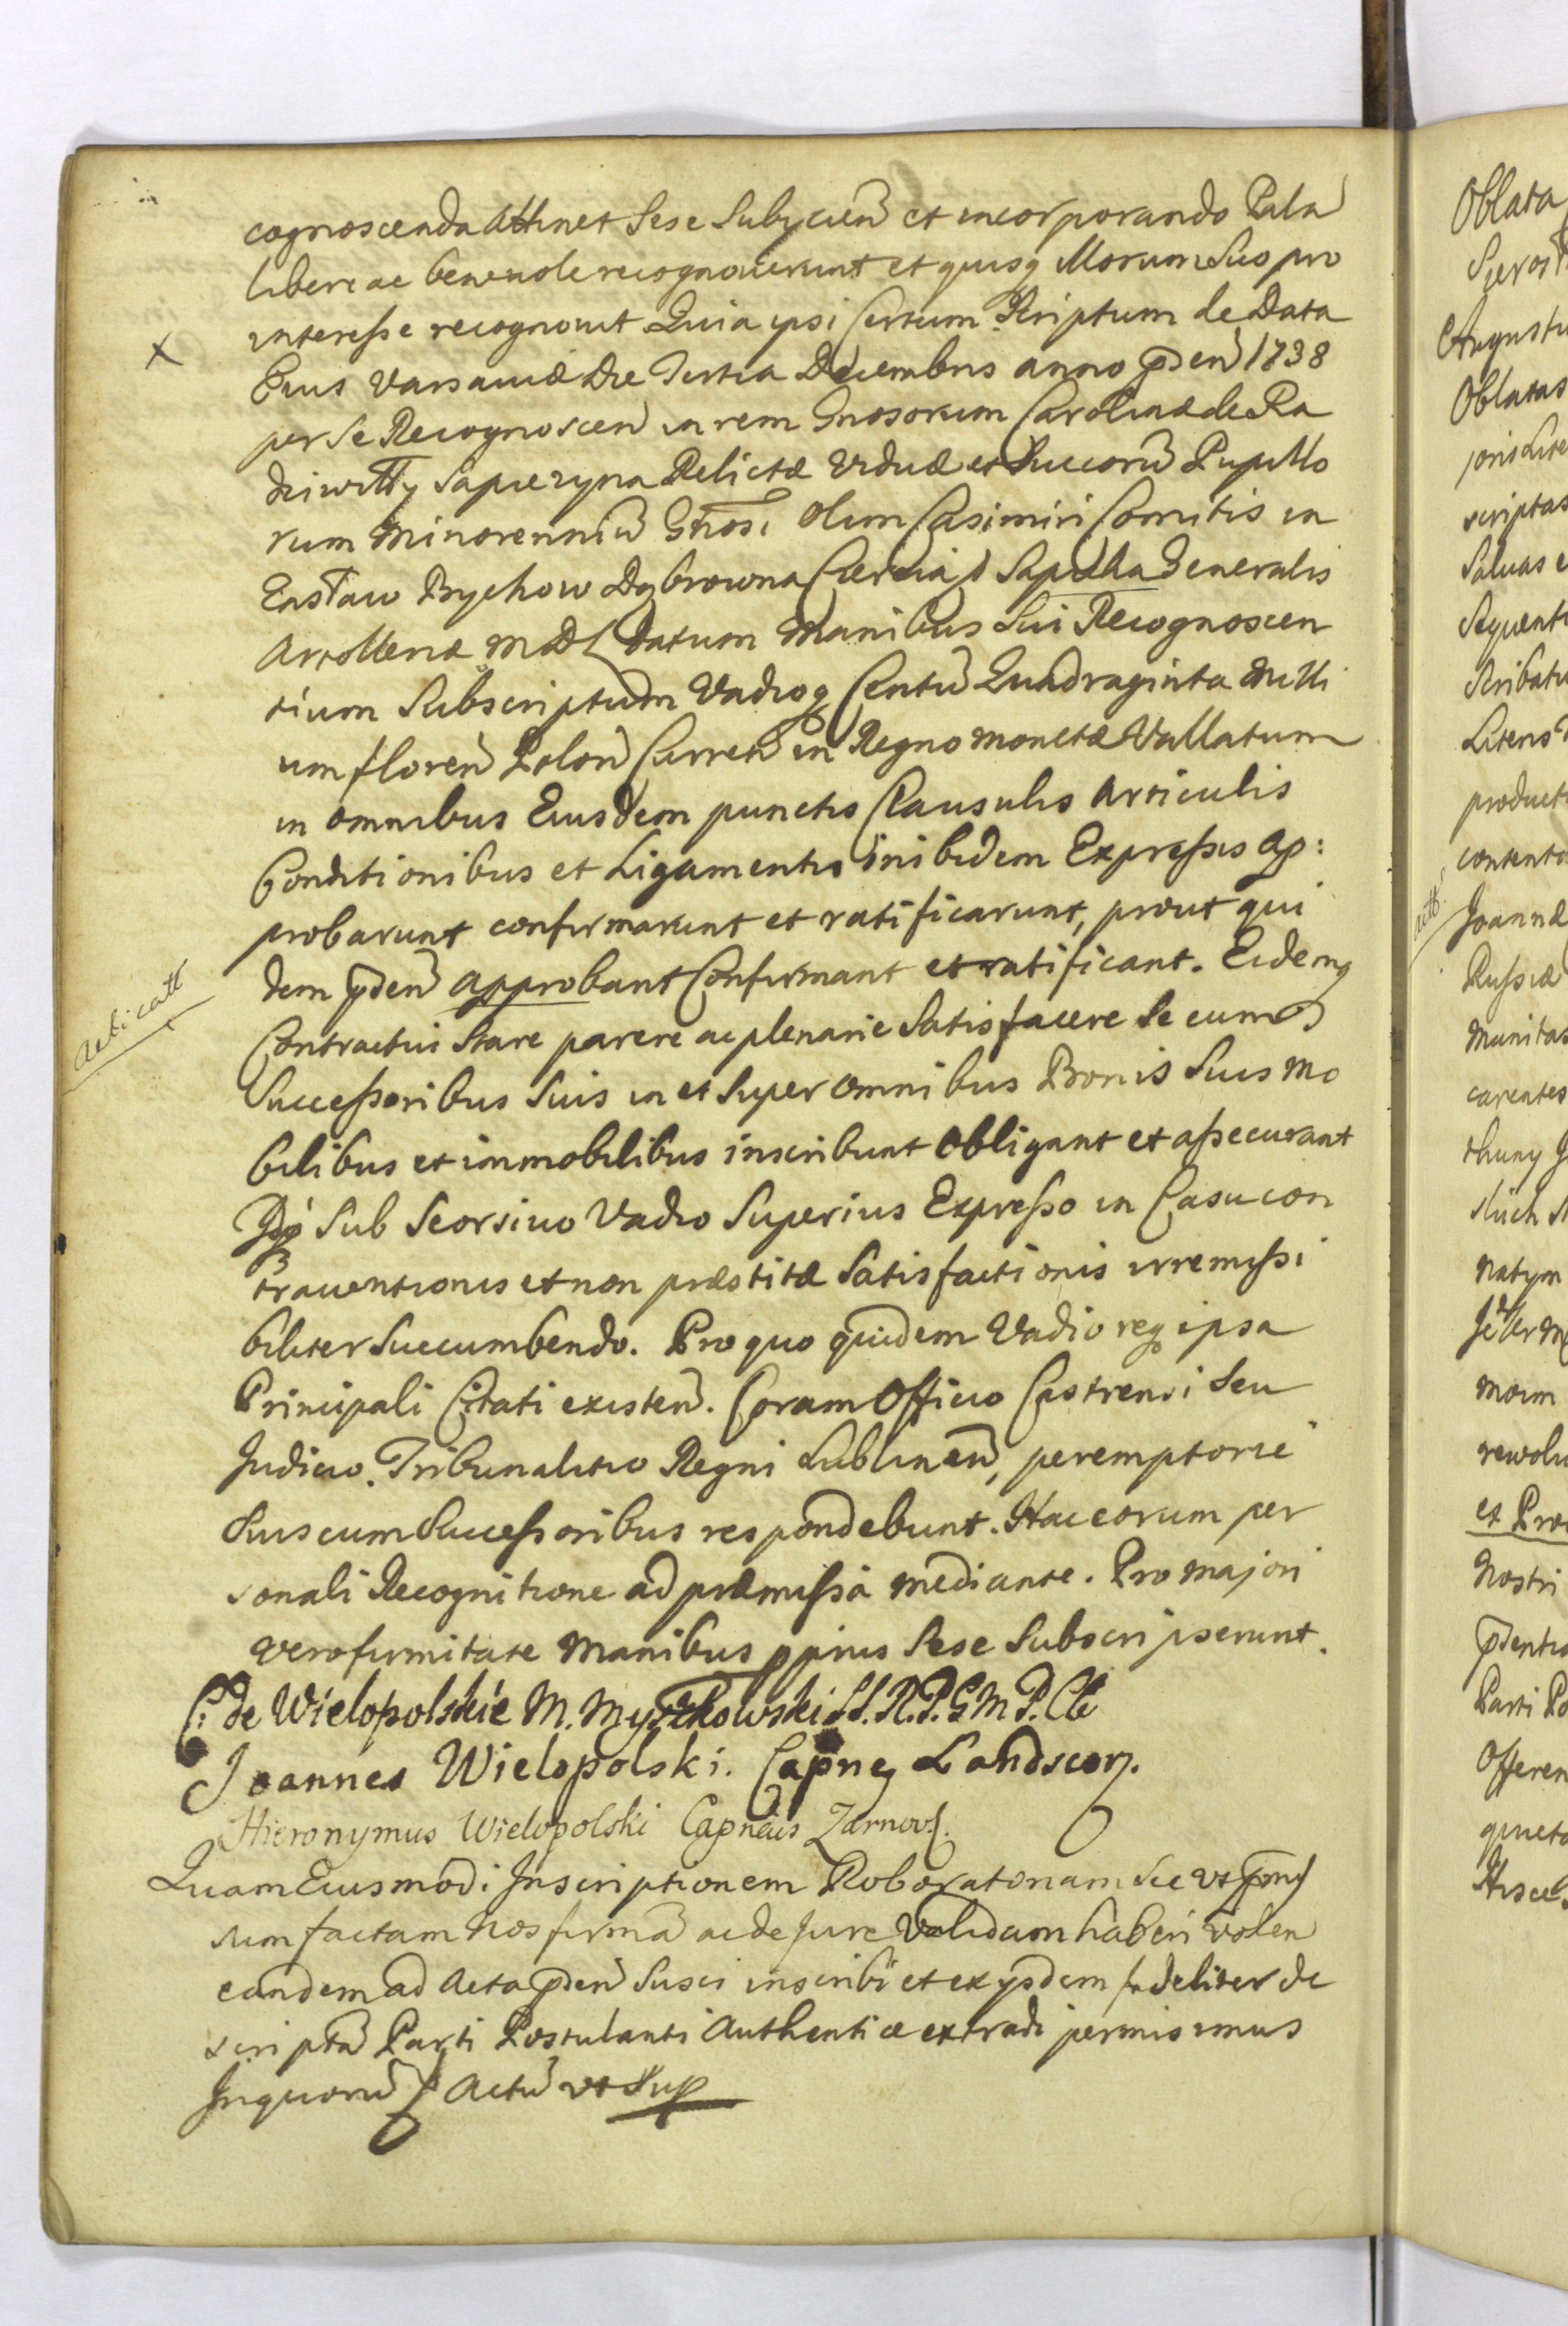 cognoscenda attinet Sese Subyicien et incorporando Pala
libere ac benevole recognoverunt et quisq Morum Suo pro
interesse recognovit Quia ipsi Certum Scriptum de Data
Eius Varsaviæ Die Tertia Decembris anno pden 1738
per Se Recognoscen in rem Gnosorum Carolinæ de Ra
dziwiłły Sapiezyna Relictæ Viduæ et Succorū Pupillo
rum Minorenniū Gnosi Olim Casimiri Comitis in
Zasław Bychow Dąbrowna Sapieha Generalis
Artolleriæ M D L Datum Manibus Sui Recognoscen
tium Subscriptum Vadioq Centū Quadraginta Milli
um floren Polon Curren in Regno monetæ Vallatum
in omnibus Eiusdem punctis Clausulis Articulis
Conditionibus et Ligamentis inibidem Expressis ap:
probarunt confirmarunt et ratificarunt, prout qui
dem pden approbant Confirmant et ratificant. Eidemq
Contractui Stare parere ac plenarie Satisfacere Se cum
Successoribus Suis in et Super omnibus Bonis Suis mo
bilibus et immobilibus inscribunt Obligant et assecurant
Sub Seorsivo Vadio Superius Expresso in Casu con
traventionis et non præstitæ Satisfactionis irremissi
biliter Succumbendo. Pro quo quidem Vadio req ipsa
Principali Citati existen. Coram Officio Castrensi Seu
Judicio Tribunalitio Regni Lublinen, peremptorie
Suis cum Successoribus respondebunt. Hac eorum per
sonali Recognitione ad præmissa mediante. Pro majori
vero firmitate Manibus pprius Sese Subscripserunt.
C: de Wielopolskie M. Myszkowski S.S.R.P.G.M.P.Cb
Joannes Wielopolski. Capneq Landscor.
Hieronymus Wielopolski Capneus Zarnov.
Quam Eiusmodi Inscriptionem Roboratoriam Sic ut pmis
sum factam Nos firmā ac de Jure Validam haberi volen
eandem ad Acta pden Susci inscribi et ex ijsdem fideliter de
scriptā Parti Postulanti Authentice extradi permisimus
Inquorū Actū ut Sup
acticatt
x
Oblata
Augustu
Oblatas
scriptas
Saluas e
Sequenti
Scribatu
Literis
product
contento
actt.
Joannæ
Russiæ
Munitas
carentes
natym
moim
rewolu
et Pro
Nostri
pdentis
Parti Po
Offeren